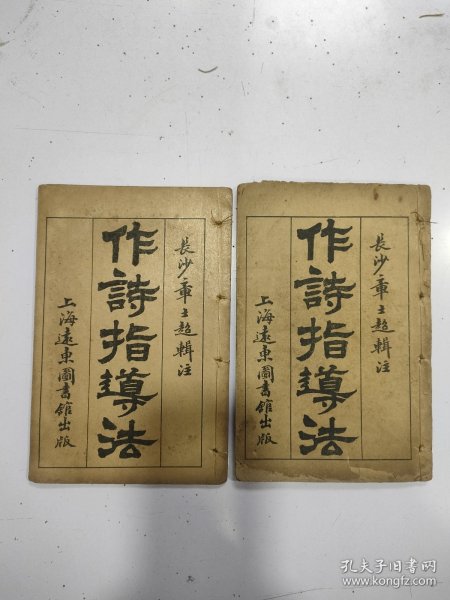 長沙章士超輯注
作詩指導法
上海遠東圖書館出版
長沙章士超輯注
作詩指導法
上海遠東圖書館出版
孔夫子旧书网
www.kongfz.com